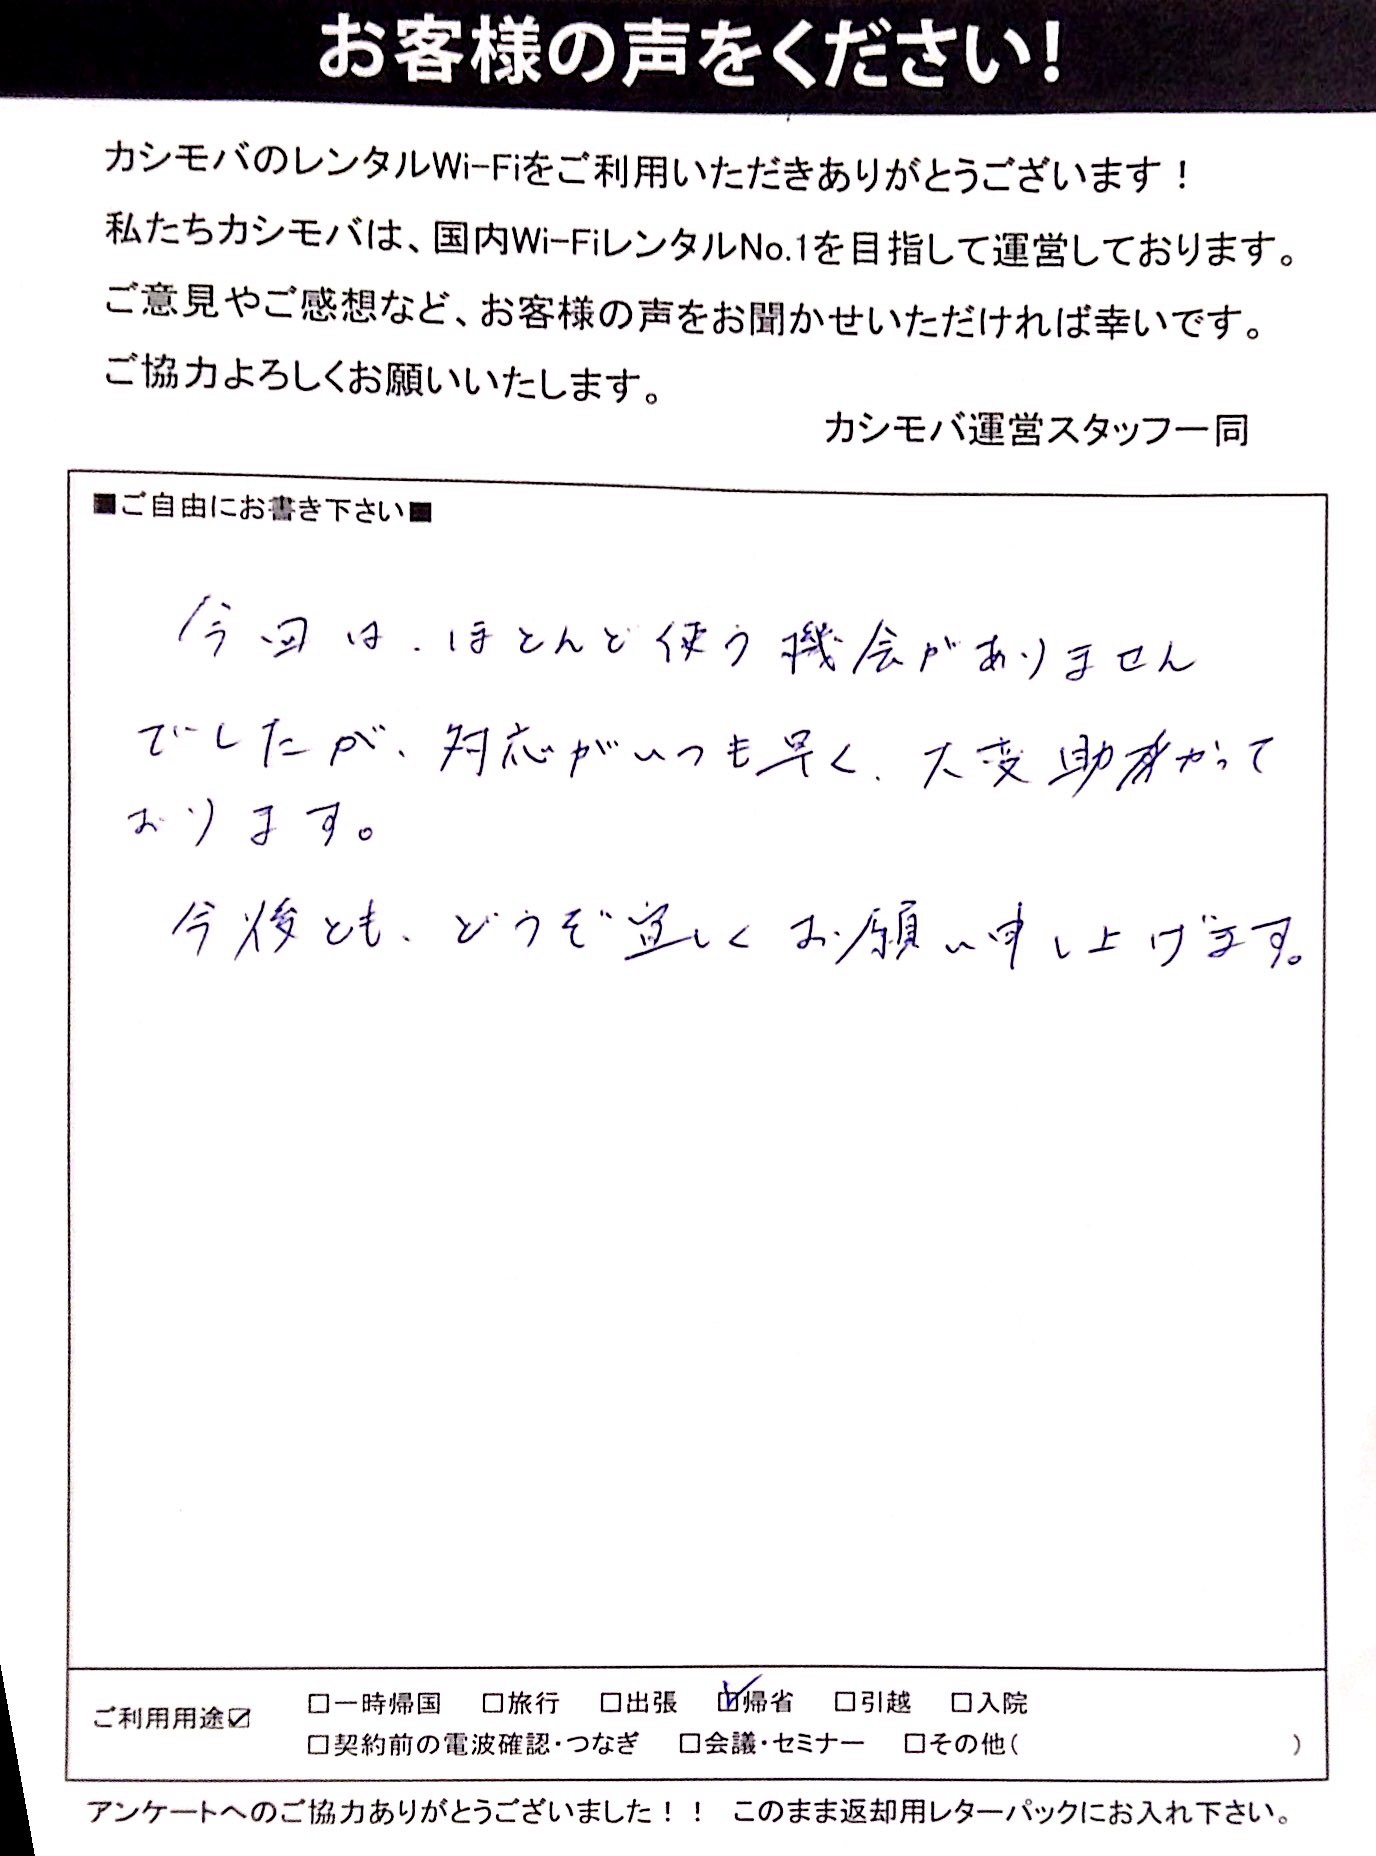 お客様の声をください!
カシモバのレンタルWi-Fiをご利用いただきありがとうございます！
私たちカシモバは、国内Wi-FiレンタルNo.1を目指して運営しております。
ご意見やご感想など、お客様の声をお聞かせいただければ幸いです。
ご協力よろしくお願いいたします。
カシモバ運営スタッフ一同
■ご自由にお書き下さい■
今回は、ほとんど使う機会がありません
でしたが、対応がいつも早く、大変助かって
おります。
今後とも、どうぞ宜しくお願い申し上げます。
ご利用用途☑ □一時帰国 □旅行 □出張 ☑帰省 □引越 □入院
□契約前の電波確認・つなぎ □会議・セミナー □その他( )
アンケートへのご協力ありがとうございました！！ このまま返却用レターパックにお入れ下さい。